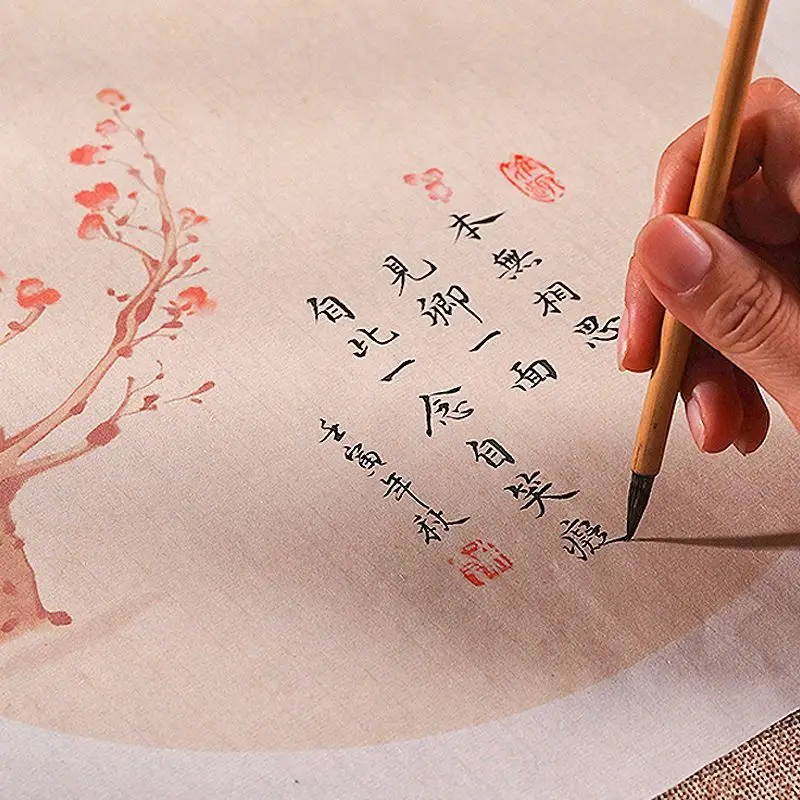 本無相思
見卿一面
自此一念自笑
壬寅年秋